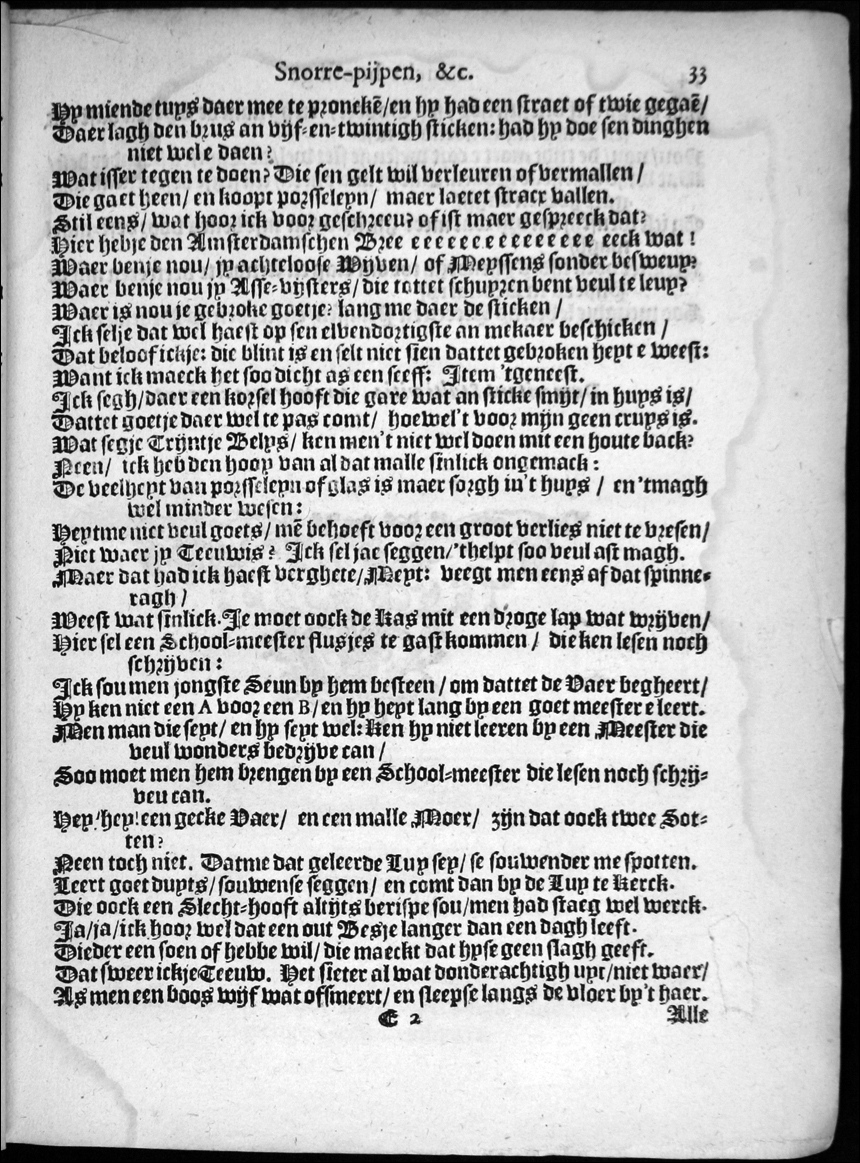 Snorre-pijpen, &c. 33
Hy miende tuys daer mee te pronckẽ/en hy had een straet of twie gegaẽ/
Daer lagh den brus an vijf-en-twintigh sticken: had hy doe sen dinghen
niet wel e daen?
Wat isser tegen te doen? Die sen gelt wil verleuren of vermallen /
Die gaet heen/ en koopt porsseleyn/ maer laetet stracx vallen.
Stil eens/ wat hoor ick voor geschreeu? of ist maer gespreeck dat?
Hier hebje den Amsterdamschen Bree eeeeeeeeeeeeeee eeck wat !
Waer benje nou/ jy achteloose Wijven/ of Meyssens sonder besweuy?
Waer benje nou jy Asse-vijsters/ die tottet schuyren bent veul te leuy?
Waer is nou je gebroke goetje? lang me daer de sticken /
Ick selje dat wel haest op sen elvendortigste an mekaer beschicken /
Dat beloof ickje: die blint is en selt niet sien dattet gebroken heyt e weest:
Want ick maeck het soo dicht as een seeff: Item 'tgeneest.
Ick segh/daer een korsel hooft die gare wat an sticke smijt/in huys is/
Dattet goetje daer wel te pas comt/ hoewel't voor mijn geen cruys is.
Wat segje Trijntje Belys/ ken men't niet wel doen mit een houte back?
Neen/ ick heb den hoop van al dat malle sinlick ongemack :
De veelheyt van porsseleyn of glas is maer sorgh in't huys / en 'tmagh
wel minder wesen:
Heytme niet veul goets/ mẽ behoeft voor een groot verlies niet te vresen/
Niet waer jy Teeuwis? Ick sel jae seggen/'thelpt soo veul ast magh.
Maer dat had ick haest verghete/Meyt: veegt men eens af dat spinne-
ragh /
Weest wat sinlick. Je moet oock de Kas mit een droge lap wat wrijven/
Hier sel een School-meester flusjes te gast kommen / die ken lesen noch
schrijven :
Ick sou men jongste Seun by hem besteen / om dattet de Vaer begheert/
Hy ken niet een A voor een B/en hy heyt lang by een goet meester e leert.
Men man die seyt/ en hy seyt wel: Ken hy niet leeren by een Meester die
veul wonders bedrijve can /
Soo moet men hem brengen by een School-meester die lesen noch schrij-
ven can.
Hey! hey! een gecke Vaer/ en een malle Moer/ zijn dat oock twee Sot-
ten?
Neen toch niet. Datme dat geleerde Luy sey/ se souwender me spotten.
Leert goet duyts/ souwense seggen/ en comt dan by de Luy te Kerck.
Die oock een Slecht-hooft altijts berispe sou/men had staeg wel werck.
Ja/ja/ick hoor wel dat een out Besje langer dan een dagh leeft.
Die der een soen of hebbe wil/ die maeckt dat hyse geen slagh geeft.
Dat sweer ickje Teeuw. Het sieter al wat donderachtigh uyt/niet waer/
As men een boos wijf wat ofsmeert/ en sleepse langs de vloer by't haer.
E 2 Alle